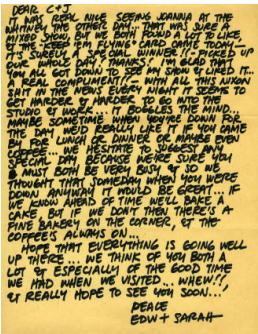 DEAR C+J
IT WAS REAL NICE SEEING JOANNA AT THE
WHITNEY THE OTHER DAY.. THAT WAS SURE A
MIXED SHOW, BUT WE BOTH FOUND A LOT TO LIKE,
& THE "KEEP 'EM FLYING" CARD CAME TODAY..
IT'S SURELY A SPECIAL WINNER! & PICKED UP
OUR WHOLE DAY! THANKS! I'M GLAD THAT
YOU ALL GOT DOWN TO SEE MY SHOW & LIKED IT...
A REAL COMPLIMENT!... WITH ALL THIS NIXON
SHIT IN THE NEWS EVERY NIGHT IT SEEMS TO
GET HARDER & HARDER TO GO INTO THE
STUDIO & WORK... IT BOGGLES THE MIND...
MAYBE SOMETIME WHEN YOU'RE DOWN FOR
THE DAY WE'D REALLY LIKE IT IF YOU CAME
BY FOR LUNCH OR DINNER OR MAYBE EVEN
COFFEE... WE HESITATE TO SUGGEST ANY
SPECIAL DAY BECAUSE WE'RE SURE YOU
MUST BOTH BE VERY BUSY & SO WE
THOUGHT THAT SOMEDAY WHEN YOU WERE
DOWN ANYWAY IT WOULD BE GREAT... IF
WE KNOW AHEAD OF TIME WE'LL BAKE A
CAKE, BUT IF WE DON'T THEN THERE'S A
FINE BAKERY ON THE CORNER, & THE
COFFEE'S ALWAYS ON...
HOPE THAT EVERYTHING IS GOING WELL
UP THERE... WE THINK OF YOU BOTH A
LOT & ESPECIALLY OF THE GOOD TIME
WE HAD WHEN WE VISITED... WHEW!!
& REALLY HOPE TO SEE YOU SOON...!
PEACE
EDW + SARAH